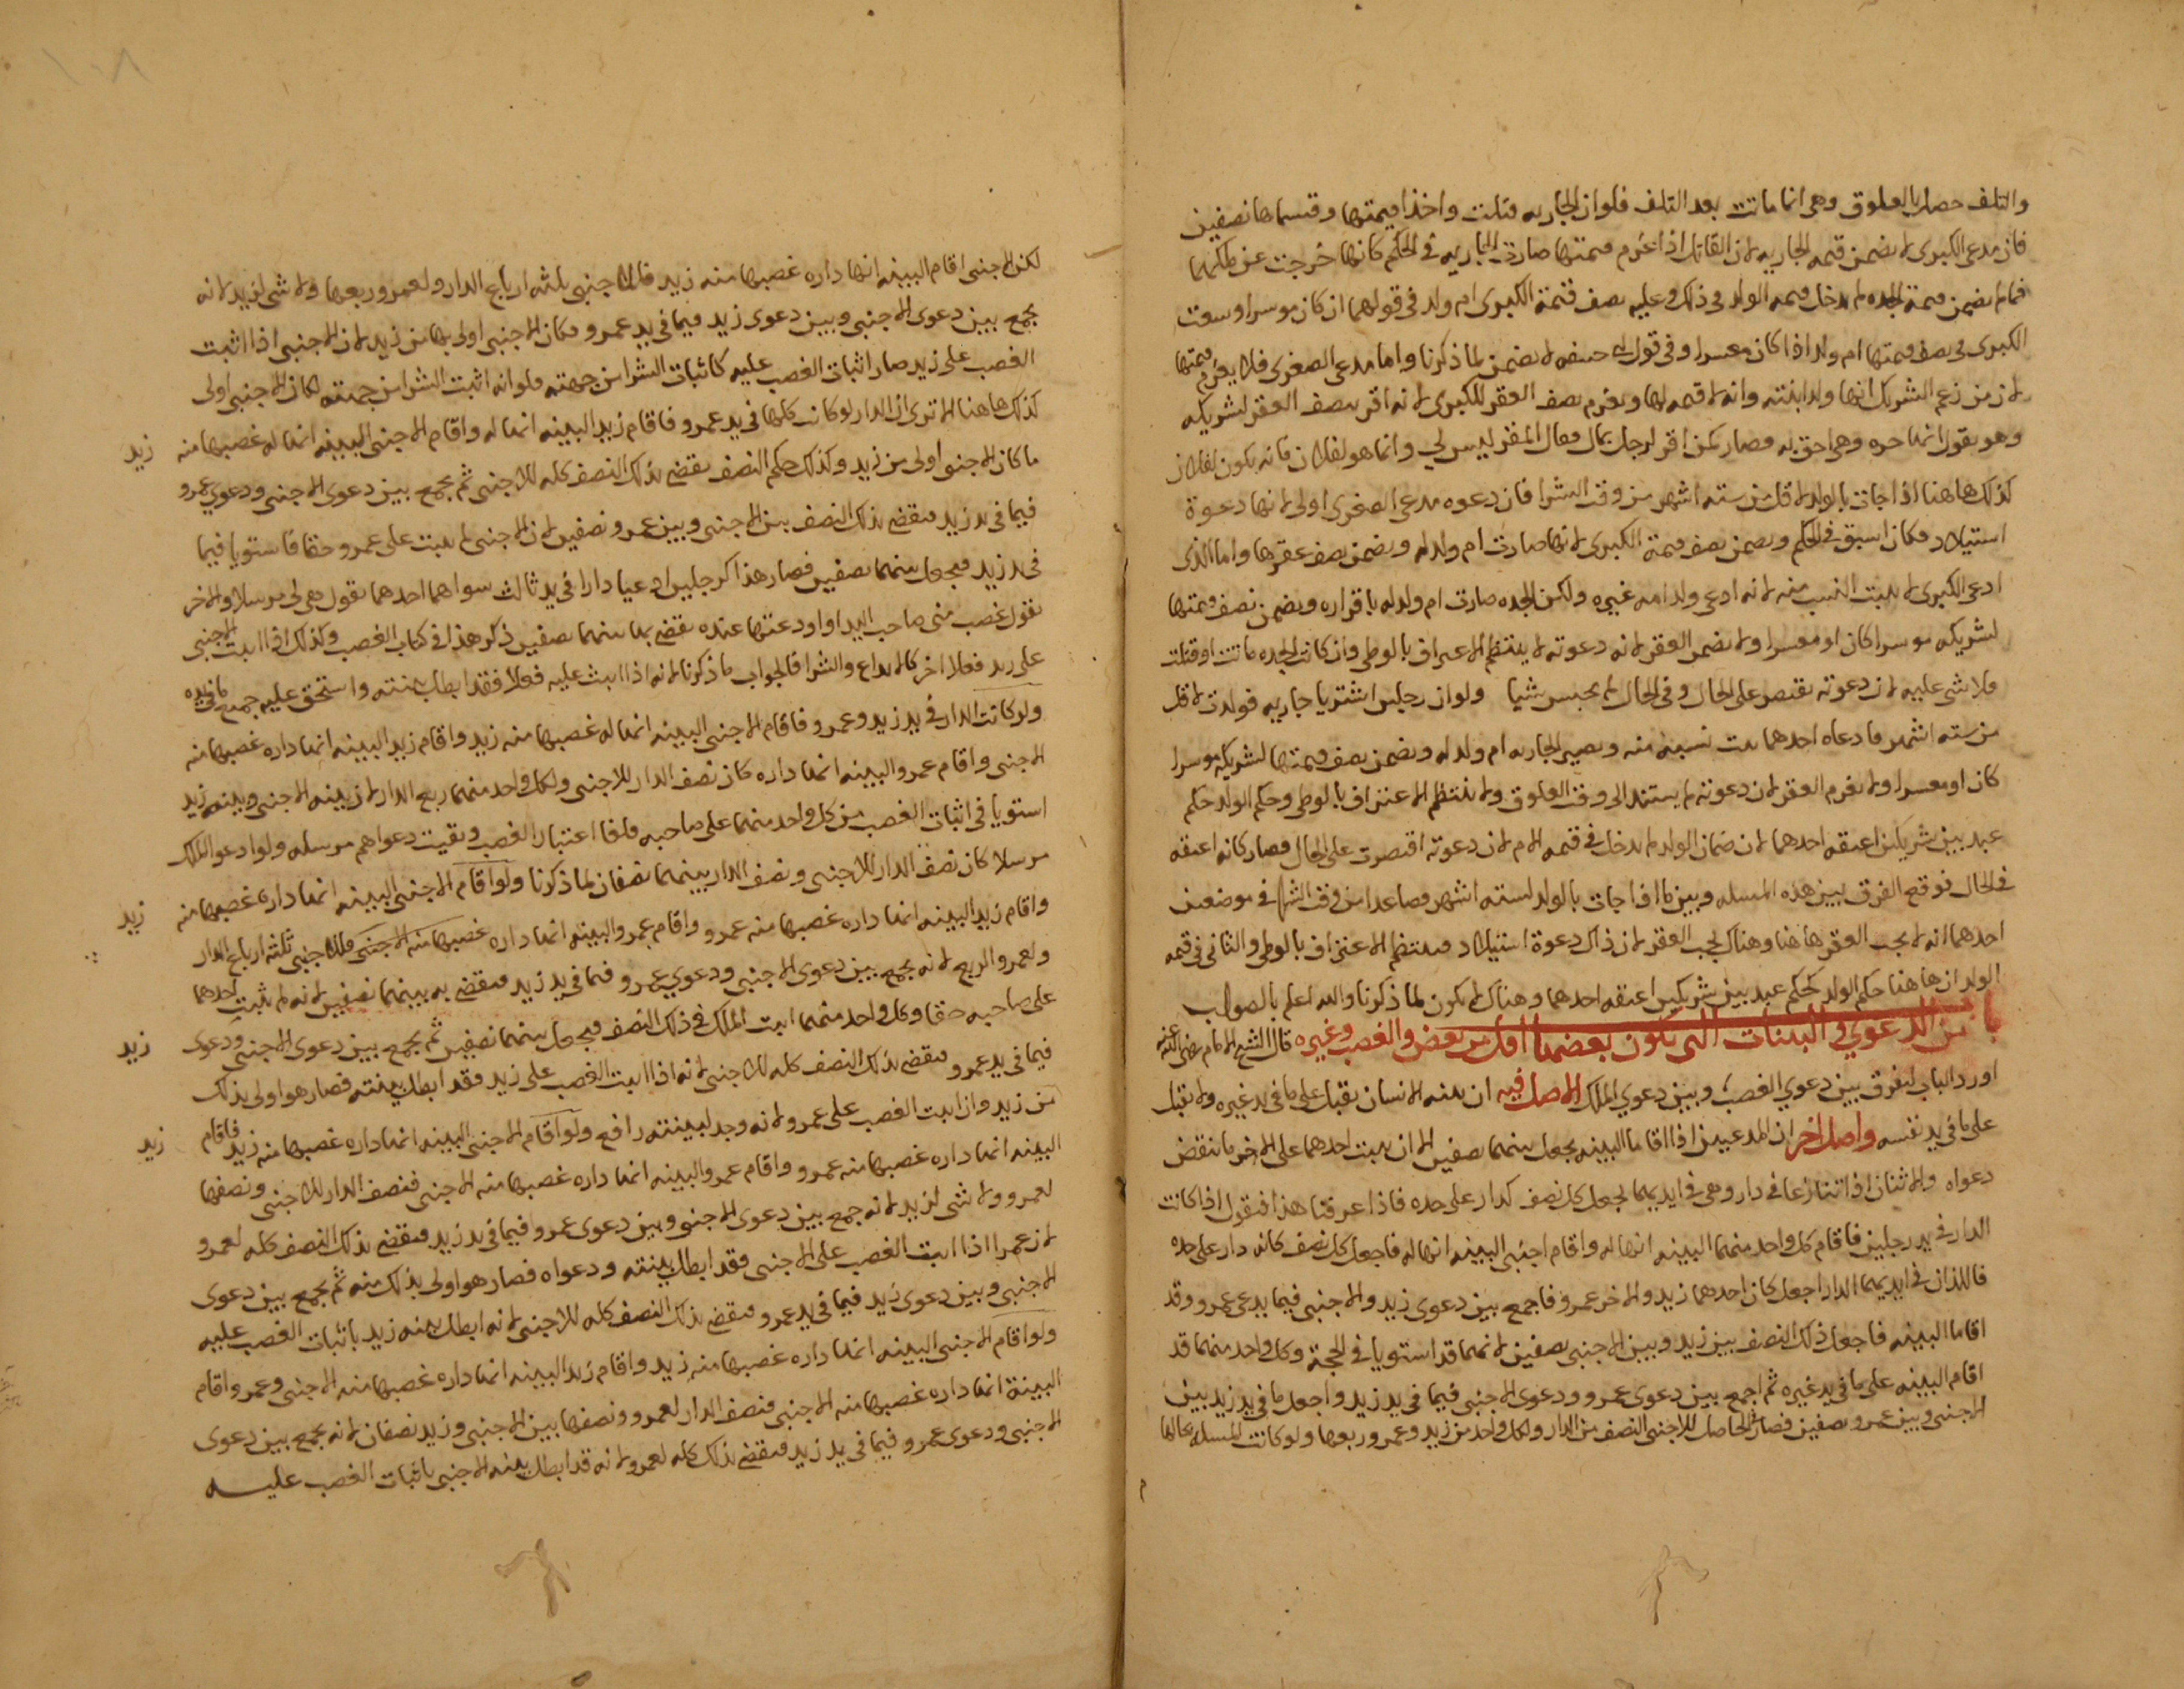 والتلف حصل بالعلوق وهى انما ماتت بعد التلف فلو ان الجاريه قتلت واخذا قيمتها وقسماها نصفين
فان مدعى الكبرى لا يضمن قيمه الجاريه لان القاتل اذا غرم قيمتها صارت الجاريه فى الحكم كانها خرجت عن ملكهما
فما لم يضمن قيمة الجده لم يدخل قيمه الولد فى ذلك وعليه نصف قيمة الكبرى ام ولد فى قولهما ان كان موسرا وسعت
الكبرى فى نصف قيمتها ام ولد اذا كان معسرا وفى قول ابى حنيفه لا يضمن لما ذكرنا واما مدعى الصغرى فلا يغرم قيمتها
لان من زعم الشريك انها ولد ابنته وانه لا قيمه لها ويغرم نصف العقر للكبرى لانه اقر بنصف العقر لشريكه
وهو يقول انها حره وهى احق به فصار كمن اقر لرجل بمال فقال المقر ليس لي وانما هو لفلان فانه يكون لفلان
كذلك هاهنا اذا جات بالولد لاقل من سته اشهر من وقت الشرا فان دعوه مدعى الصغرى اولى لانها دعوة
استيلاد فكان اسبق فى الحكم ويضمن نصف قيمة الكبرى لانها صارت ام ولد له ويضمن نصف عقرها واما الذى
ادعى الكبرى لا يثبت النسب منه لانه ادعى ولد امه غيره ولكن الجده صارت ام ولد له باقراره ويضمن نصف قيمتها
لشريكه موسرا كان او معسرا ولا يضمن العقر لانه دعوته لا ينتظم الاعتراف بالوطى وان كانت الجده ماتت او قتلت
فلا شى عليه لان دعوته يقتصر على الحال وفى الحال لم يحبس شيا ولو ان رجلين اشتريا جاريه فولدت لاقل
من سته اشهر فادعاه احدهما يثبت نسبه منه ويصير الجاريه ام ولد له ويضمن نصف قيمتها لشريكه موسرا
كان او معسرا ولا يغرم العقر لان دعوته لم يستند الى وقت العلوق ولا ينتظم الاعتراف بالوطى وحكم الولد حكم
عبد بين شريكين اعتقه احدهما لان ضمان الولد لم يدخل فى قيمه الام لان دعوته اقتصرت على الحال فصار كانه اعتقه
فى الحال فوقع الفرق بين هذه المسله وبين ما اذا جات بالولد لسته اشهر فصاعدا من وقت الشرا فى موضعين
احدهما انه لا يجب العقر هاهنا وهناك يجب العقر لان ذاك دعوة استيلاد فينتظم الاعتراف بالوطى والثانى فى قيمه
الولد ان هاهنا حكم الولد كحكم عبد بين شريكين اعتقه احدهما وهناك لا يكون لما ذكرنا والله اعلم بالصواب
باب من الدعوي فى البينات التى تكون بعضها اولى من بعض والغصب وغيره قال الشيخ الامام رضى الله عنه
اورد الباب ليفرق بين دعوي الغصب وبين دعوي الملك الاصل فيه ان بينه الانسان يقبل على ما فى يد غيره ولا يقبل
على ما فى يد نفسه واصل اخر ان المدعيين اذا اقاما البينه يجعل بينهما نصفين الا ان يثبت احدهما على الاخر ما ينقض
دعواه والاثنان اذا تنازعا فى دار وهى فى ايديهما يجعل كل نصف كدار على حده فاذا عرفنا هذا فنقول اذا كانت
الدار فى يد رجلين فاقام كل واحد منهما البينه انها له واقام اجنبى البينه انها له فاجعل كل نصف كانه دار على حده
فاللذان فى ايديهما الدار اجعل كان احدهما زيد والاخر عمرو فاجمع بين دعوى زيد والاجنبى فيما يدعى عمرو وقد
اقاما البينه فاجعل ذلك النصف بين زيد وبين الاجنبى نصفين لانهما قد استويا فى الحجة وكل واحد منهما قد
اقام البينه على ما فى يد غيره ثم اجمع بين دعوى عمرو ودعوى الاجنبى فيما فى يد زيد واجعل ما فى يد زيد بين
الاجنبى وبين عمرو نصفين فصار الحاصل للاجنبى النصف من الدار ولكل واحد من زيد وعمرو ربعها ولو كانت المسله بحالها
لكن الاجنبى اقام البينه انها داره غصبها منه زيد فللاجنبى ثلثه ارباع الدار ولعمرو ربعها ولا شى لزيد لانه
يجمع بين دعوى الاجنبى وبين دعوى زيد فيما فى يد عمرو فكان الاجنبى اولى بها من زيد لان الاجنبى اذا اثبت
الغصب على زيد صار اثبات الغصب عليه كاثبات الشرا من جهته ولو انه اثبت الشرا من جهته لكان الاجنبى اولى
كذلك هاهنا الا ترى ان الدار لو كانت كلها فى يد عمرو فاقام زيد البينه انها له واقام الاجنبى البينه انها له غصبها منه زيد
ما كان الاجنبى اولى من زيد وكذلك حكم النصف يقضى بذلك النصف كله للاجنبى ثم يجمع بين دعوى الاجنبى ودعوي عمرو
فيما فى يد زيد فيقضى بذلك النصف بين الاجنبى وبين عمرو نصفين لان الاجنبى لم يثبت على عمرو حقا فاستويا فيما
فى يد زيد فيجعل بينهما نصفين فصار هذا كرجلين ادعيا دارا فى يد ثالث سواهما احدهما يقول هى لى مرسلا والاخر
يقول غصب منى صاحب اليد او اودعتها عنده يقضى بها بينهما نصفين ذكر هذا فى كتاب الغصب وكذلك اذا اثبت الاجنبى
على زيد فعلا اخر كالايداع والشرا فالجواب ما ذكرنا لانه اذا اثبت عليه فعلا فقد ابطل بينته واستحق عليه جميع ما فى يده
ولو كانت الدار فى يد زيد وعمرو فاقام الاجنبى البينه انها له غصبها منه زيد واقام زيد البينه انها داره غصبها منه
الاجنبى واقام عمرو البينه انها داره كان نصف الدار للاجنبى ولكل واحد منهما ربع الدار لان بينه الاجنبى وبينه زيد
استويا فى اثبات الغصب من كل واحد منهما على صاحبه فلغا اعتبار الغصب وبقيت دعواهم مرسله ولو ادعو الملك
مرسلا كان نصف الدار للاجنبى ونصف الدار بينهما نصفان لما ذكرنا ولو اقام الاجنبى البينه انها داره غصبها منه زيد
واقام زيد البينه انها داره غصبها منه عمرو واقام عمرو البينه انها داره غصبها منه الاجنبى فللاجنبى ثلثه ارباع الدار
ولعمرو الربع لانه يجمع بين دعوى الاجنبى ودعوي عمرو فيما فى يد زيد فيقضى به بينهما نصفين لانه لم يثبت احدهما
على صاحبه حقا وكل واحد منهما اثبت الملك فى ذلك النصف فيجعل بينهما نصفين ثم يجمع بين دعوى الاجنبى ودعوى زيد
فيما فى يد عمرو فيقضى بذلك النصف كله للاجنبى لانه اذا اثبت الغصب على زيد فقد ابطل بينته فصار هو اولى بذلك
من زيد وان اثبت الغصب على عمرو لانه وجد لبينته رافع ولو اقام الاجنبى البينه انها داره غصبها منه زيد فاقام زيد
البينه انها داره غصبها منه عمرو واقام عمرو البينه انها داره غصبها منه الاجنبى فنصف الدار للاجنبى ونصفها
لعمرو ولا شى لزيد لانه جمع بين دعوى الاجنبى وبين دعوى عمرو فيما فى يد زيد فيقضى بذلك النصف كله لعمرو
لان عمرا اذا اثبت الغصب على الاجنبى فقد ابطل بينته ودعواه فصار هو اولى بذلك منه ثم يجمع بين دعوى
الاجنبى وبين دعوى زيد فيما فى يد عمرو فيقضى بذلك النصف كله للاجنبى لانه ابطل بينه زيد باثبات الغصب عليه
ولو اقام الاجنبى البينه انها داره غصبها منه زيد واقام زيد البينه انها داره غصبها منه الاجنبى وعمرو اقام
البينة انها داره غصبها منه الاجنبى فنصف الدار لعمرو ونصفها بين الاجنبى وزيد نصفان لانه يجمع بين دعوى
الاجنبى ودعوى عمرو فيما فى يد زيد فيقضى بذلك كله لعمرو لانه قد ابطل بينه الاجنبى باثبات الغصب عليه